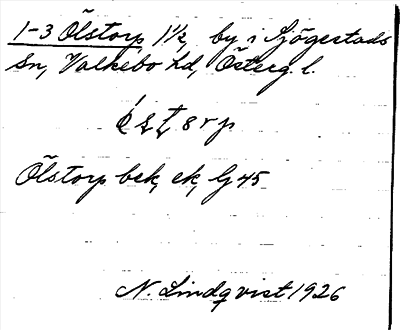 1-3 Ölstorp 1½, by i Sjögestads
Sn, Valkebo hd, Österg. l.
Ölstorp bek, ek, Lj 45
N. Lindqvist 1926